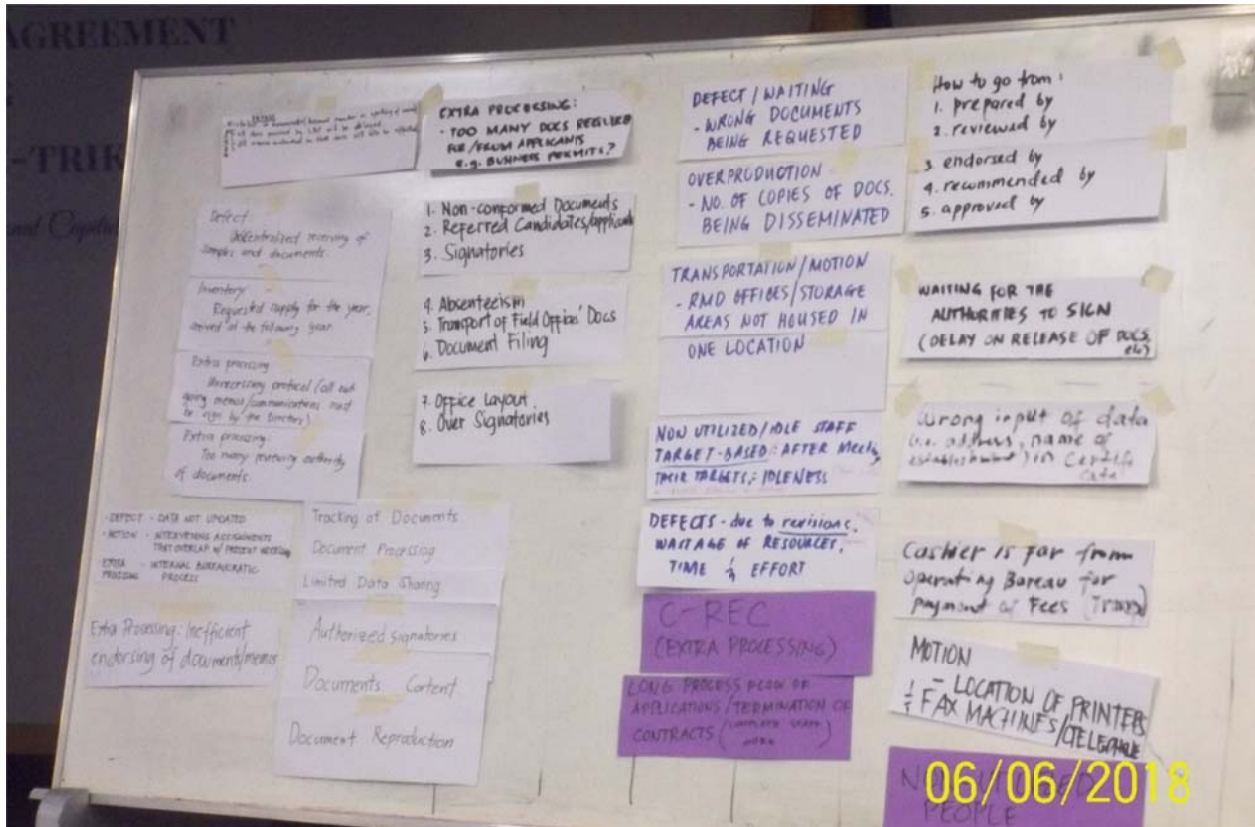 AGREEMENT
-TRIK
EXTRA PROCESSING:
- TOO MANY DOCS REQUIRED
FOR/FROM APPLICANTS
e.g. BUSINESS PERMITS?
Defect
Decentralized receiving of
samples and documents.
Inventory
Requested supply for the year,
arrived at the following year.
Extra processing
Unnecessary protocol (all out
going memos/communications must
be sign by the directors)
Extra processing
Too many receiving authority
of documents.
- DEFECT - DATA NOT UPDATED
- MOTION - INTERVENING ASSIGNMENTS
THAT OVERLAP W/ PRESENT
EXTRA - INTERNAL BUREAUCRATIC
PROCESS
Extra Processing: Inefficient
endorsing of document/memos
1. Non-conformed Documents
2. Referred Candidates/applicants
3. Signatories
4. Absenteeism
5. Transport of Field Offices' Docs
6. Document Filing
7. Office Layout
8. Over Signatories
Tracking of Documents
Document Processing
Limited Data Sharing
Authorized signatories
Documents Content
Document Reproduction
DEFECT / WAITING
- WRONG DOCUMENTS
BEING REQUESTED
OVERPRODUCTION
- NO. OF COPIES OF DOCS.
BEING DISSEMINATED
TRANSPORTATION / MOTION
- RMD OFFICES/STORAGE
AREAS NOT HOUSED IN
ONE LOCATION
NON UTILIZED/IDLE STAFF
TARGET-BASED: AFTER Meeting
THEIR TARGETS; IDLENESS
DEFECTS - due to revisions,
WASTAGE OF RESOURCES,
TIME & EFFORT
C-REC
(EXTRA PROCESSING)
LONG PROCESS FLOW OF
APPLICATIONS/TERMINATION OF
CONTRACTS (COMPLETE STAFF
WORK)
How to go from:
1. prepared by
2. reviewed by
3. endorsed by
4. recommended by
5. approved by
WAITING FOR THE
AUTHORITIES TO SIGN
(DELAY ON RELEASE OF DOCS, etc)
Wrong input of data
(i.e. address, name of
establishment) in Certifi
cate
Cashier is far from
operating Bureau for
payment of Fees
MOTION
- LOCATION OF PRINTERS
& FAX MACHINES/TELEPHONE
PEOPLE
06/06/2018